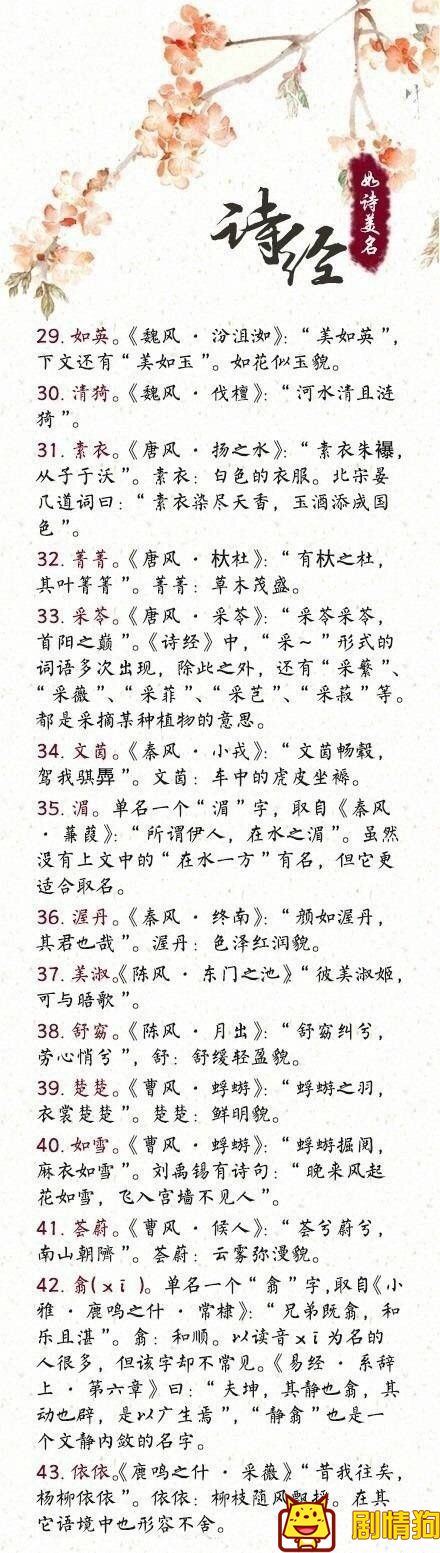 如诗美名
诗经
29. 如英。《魏风 · 汾沮洳》：“美如英”，
下文还有“美如玉”。如花似玉貌。
30. 清猗。《魏风 · 伐檀》：“河水清且涟
猗”。
31. 素衣。《唐风 · 扬之水》：“素衣朱襮，
从子于沃”。素衣：白色的衣服。北宋晏
几道词曰：“素衣染尽天香，玉酒添成国
色”。
32. 菁菁。《唐风 · 杕杜》：“有杕之杜，
其叶菁菁”。菁菁：草木茂盛。
33. 采苓。《唐风 · 采苓》：“采苓采苓，
首阳之巅”。《诗经》中，“采～”形式的
词语多次出现，除此之外，还有“采蘩”、
“采薇”、“采菲”、“采芑”、“采菽”等。
都是采摘某种植物的意思。
34. 文茵。《秦风 · 小戎》：“文茵畅毂，
驾我骐馵”。文茵：车中的虎皮坐褥。
35. 湄。单名一个“湄”字，取自《秦风
· 蒹葭》：“所谓伊人，在水之湄”。虽然
没有上文中的“在水一方”有名，但它更
适合取名。
36. 渥丹。《秦风 · 终南》：“颜如渥丹，
其君也哉”。渥丹：色泽红润貌。
37. 美淑。《陈风 · 东门之池》“彼美淑姬，
可与晤歌”。
38. 舒窈。《陈风 · 月出》：“舒窈纠兮，
劳心悄兮”，舒：舒缓轻盈貌。
39. 楚楚。《曹风 · 蜉蝣》：“蜉蝣之羽，
衣裳楚楚”。楚楚：鲜明貌。
40. 如雪。《曹风 · 蜉蝣》：“蜉蝣掘阅，
麻衣如雪”。刘禹锡有诗句：“晚来风起
花如雪，飞入宫墙不见人”。
41. 荟蔚。《曹风 · 候人》：“荟兮蔚兮，
南山朝隮”。荟蔚：云雾弥漫貌。
42. 翕(xī)。单名一个“翕”字，取自《小
雅 · 鹿鸣之什 · 常棣》：“兄弟既翕，和
乐且湛”。翕：和顺。以读音xī为名的
人很多，但该字却不常见。《易经 · 系辞
上 · 第六章》曰：“夫坤，其静也翕，其
动也辟，是以广生焉”，“静翕”也是一
个文静内敛的名字。
43. 依依。《鹿鸣之什 · 采薇》“昔我往矣，
杨柳依依”。依依：柳枝随风飘摇。在其
它语境中也形容不舍。
剧情狗